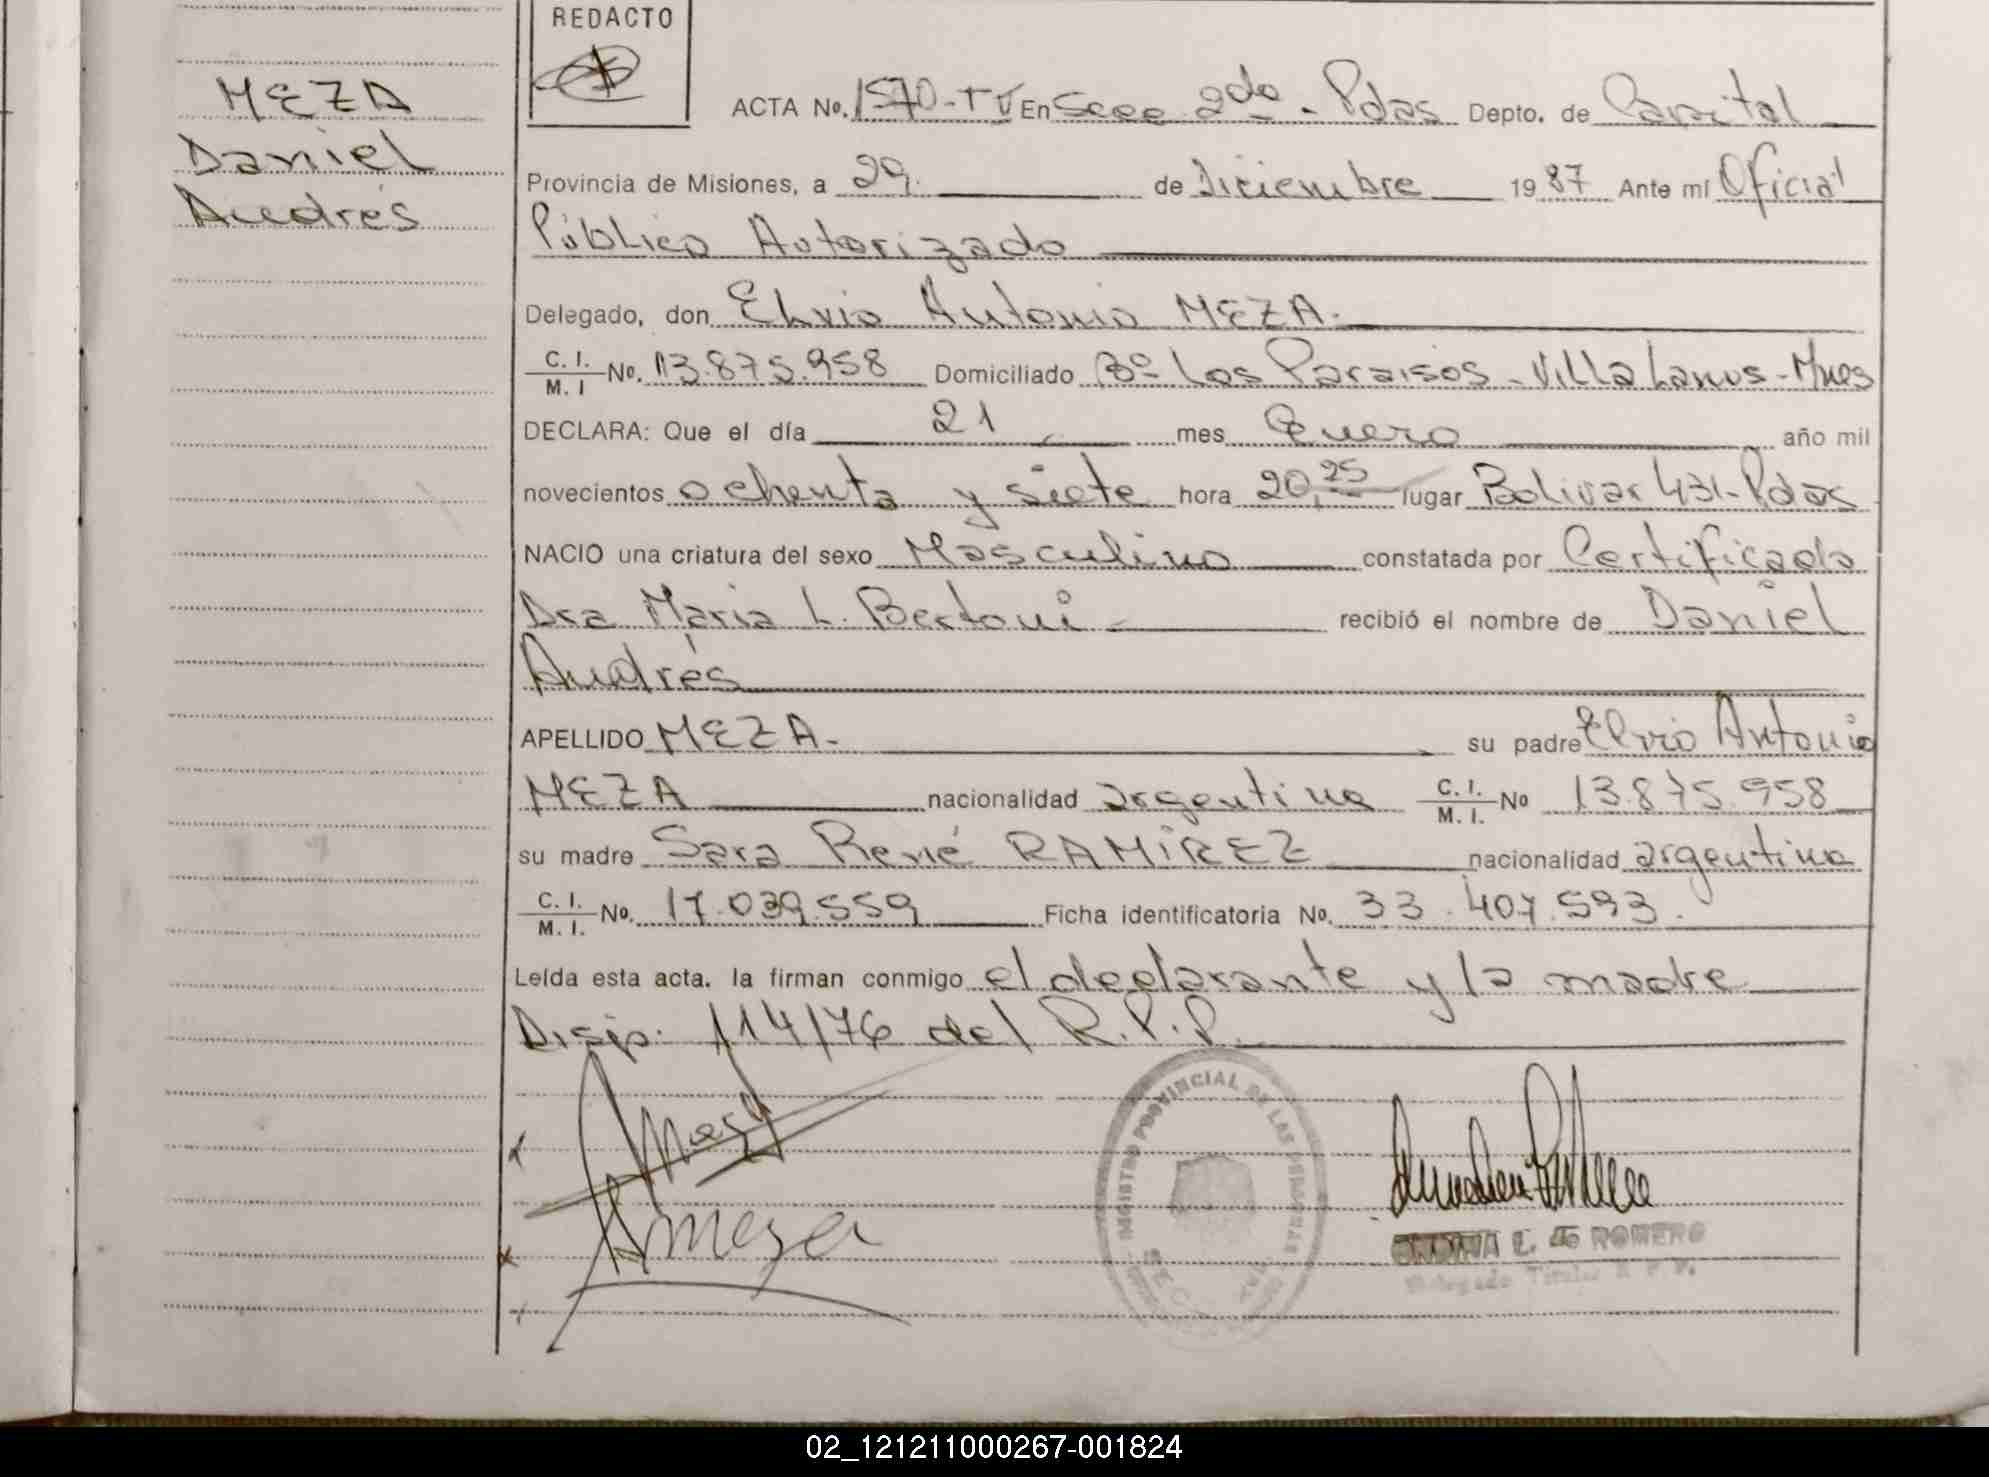 REDACTO
MEZA
Daniel
Andrés
ACTA No. 1570-TV En Secc 2da - Pdas Depto. de Capital
Provincia de Misiones, a 29. de Diciembre 1987 Ante mí Oficial
Público Autorizado
Delegado, don Elvio Antonio MEZA.
C. I. / M. I No. 13.875.958 Domiciliado Bº Los Paraisos - Villa Lanus - Mnes
DECLARA: Que el día 21 mes Enero año mil
novecientos ochenta y siete hora 20,25 lugar Bolivar 431- Pdas
NACIO una criatura del sexo Masculino constatada por Certificado
Dra Maria L. Bertoni - recibió el nombre de Daniel
Andrés
APELLIDO MEZA- su padre Elvio Antonio
MEZA nacionalidad argentina C. I. / M. I. No 13.875.958
su madre Sara René RAMÍREZ nacionalidad argentina
C. I. / M. I. No. 17.039.559 Ficha identificatoria No. 33.407.593.
Leída esta acta. la firman conmigo el declarante y la madre
Disp: 114/76 del R.P.P.
REGISTRO PROVINCIAL DE LAS PERSONAS
E. de ROMERO
Delegado Titular R.P.P.
02_121211000267-001824